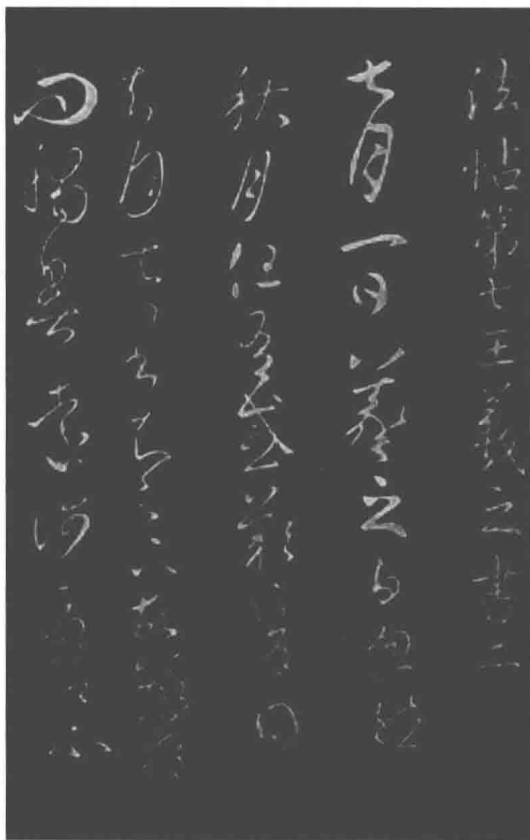 法帖第七王羲之書二
七月一日羲之白忽然
秋月但有感歎信反
去月七日書知足下故羸疾
問觸暑遠涉憂卿不